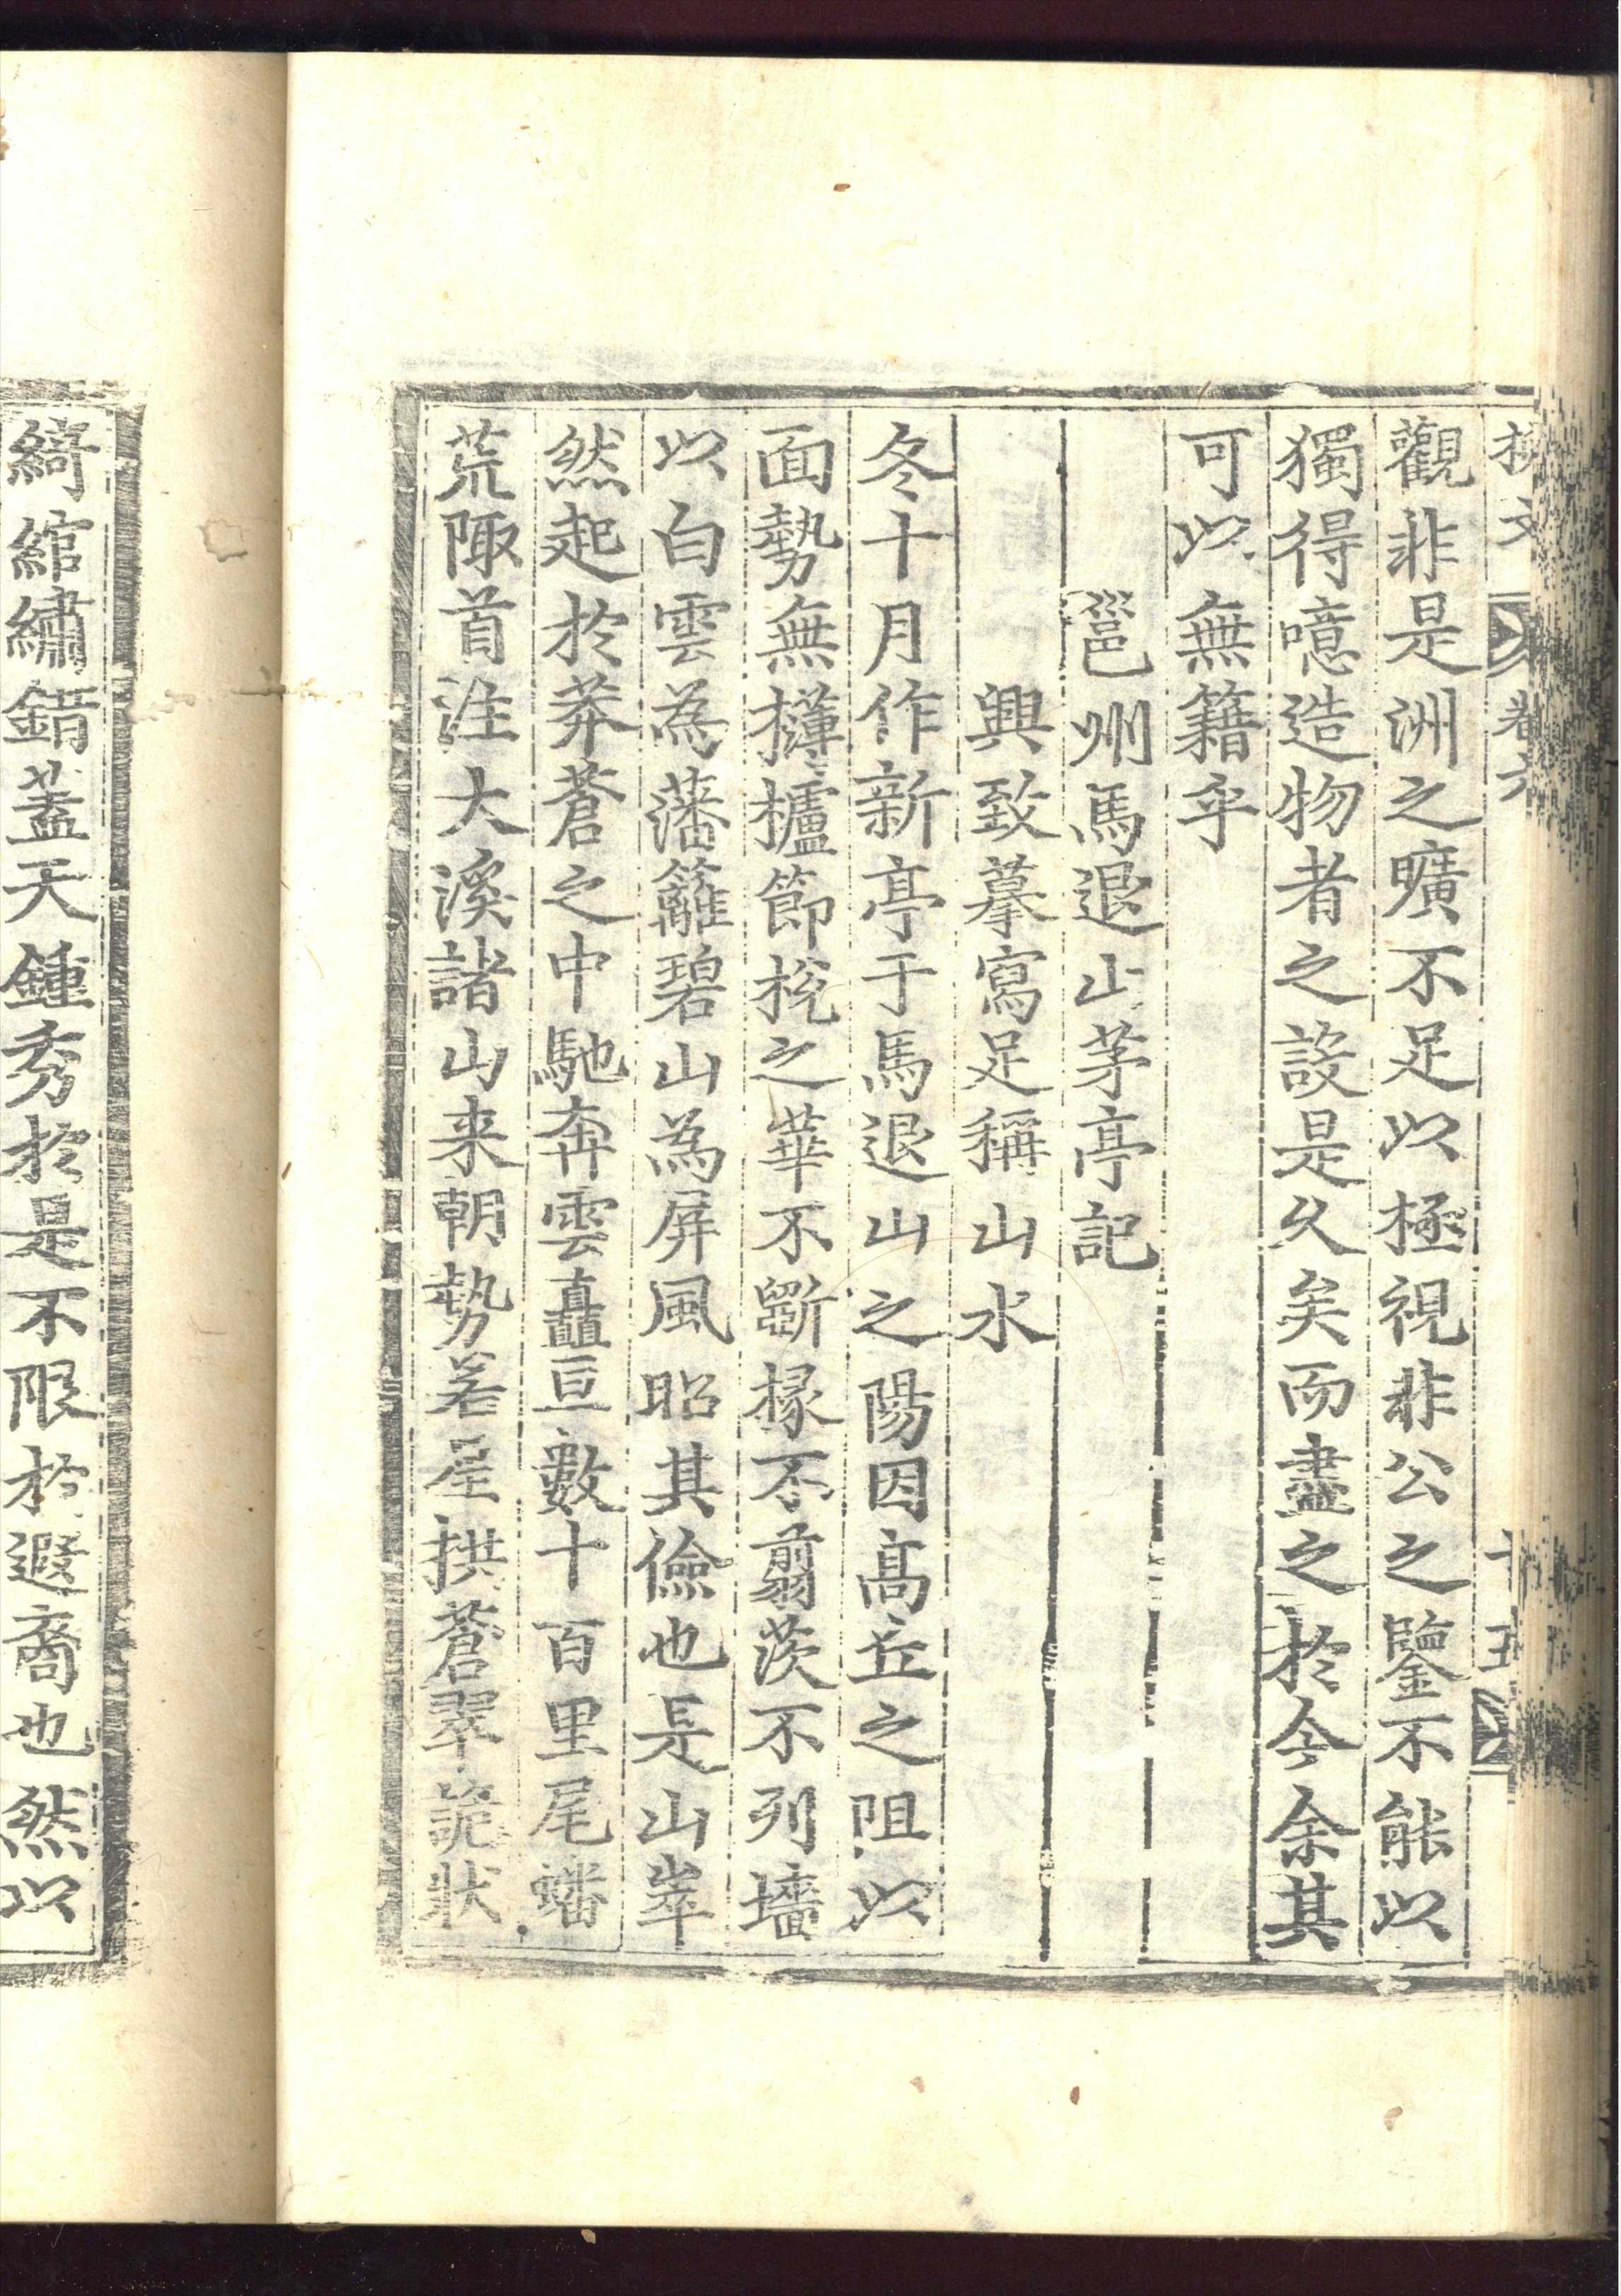 卷六
觀非是洲之曠不足以極視非公之鑒不能以
獨得噫造物者之設是久矣而盡之於今余其
可以無籍乎
邕州馬退山茅亭記
興致摹寫足稱山水
冬十月作新亭于馬退山之陽因高丘之阻以
面勢無欂櫨節梲之華不斲椽不翦茨不列墻
以白雲為藩籬碧山為屏風昭其儉也是山崒
然起於莽蒼之中馳奔雲矗亘數十百里尾蟠
荒陬首注大溪諸山来朝勢若星拱蒼翠詭狀
綺綰繡錯盖天鍾秀於是不限於遐裔也然以